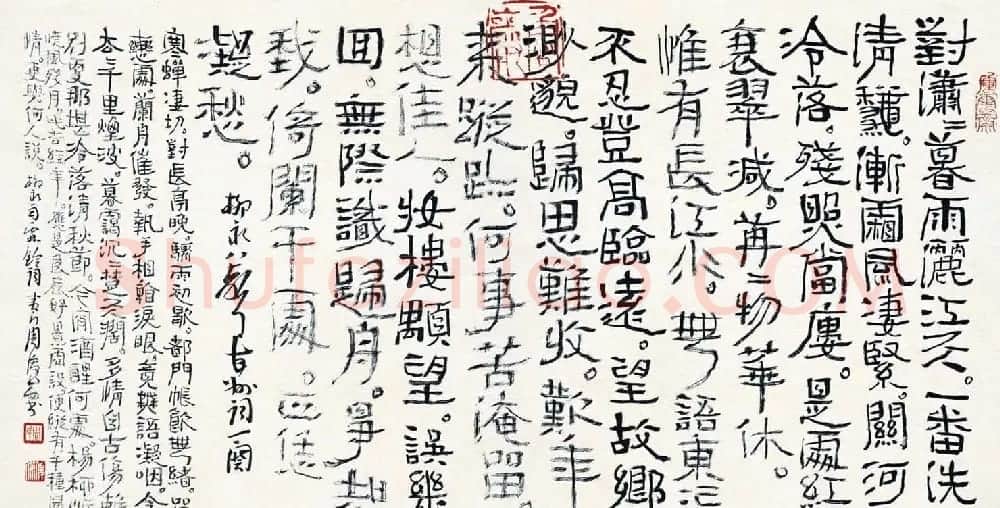 對瀟〻暮雨灑江天。一番洗
清龝。漸霜風淒緊。關河
冷落。殘照當樓。是處紅
衰翠減。苒〻物華休。
惟有長江水。無語東流
不忍登高臨遠。望故鄉
渺邈。歸思難收。歎年
來蹤跡。何事苦淹留
想佳人。妝樓顒望。誤幾
回。無際識歸舟。爭知
我。倚闌干處。正恁
凝愁。柳永八聲甘州詞一闋
寒蟬淒切。對長亭晚。驟雨初歇。都門帳飲無緒。留
戀處蘭舟催發。執手相看淚眼。竟無語凝咽。念
去千里煙波。暮靄沉〻楚天闊。多情自古傷離
別更那堪冷落清秋節。今宵酒醒何處。楊柳岸
曉風殘月。此去經年。應是良辰好景虛設。便縱有千種風
情。更與何人說。柳永句雨霖鈴
shufaziliao.COM